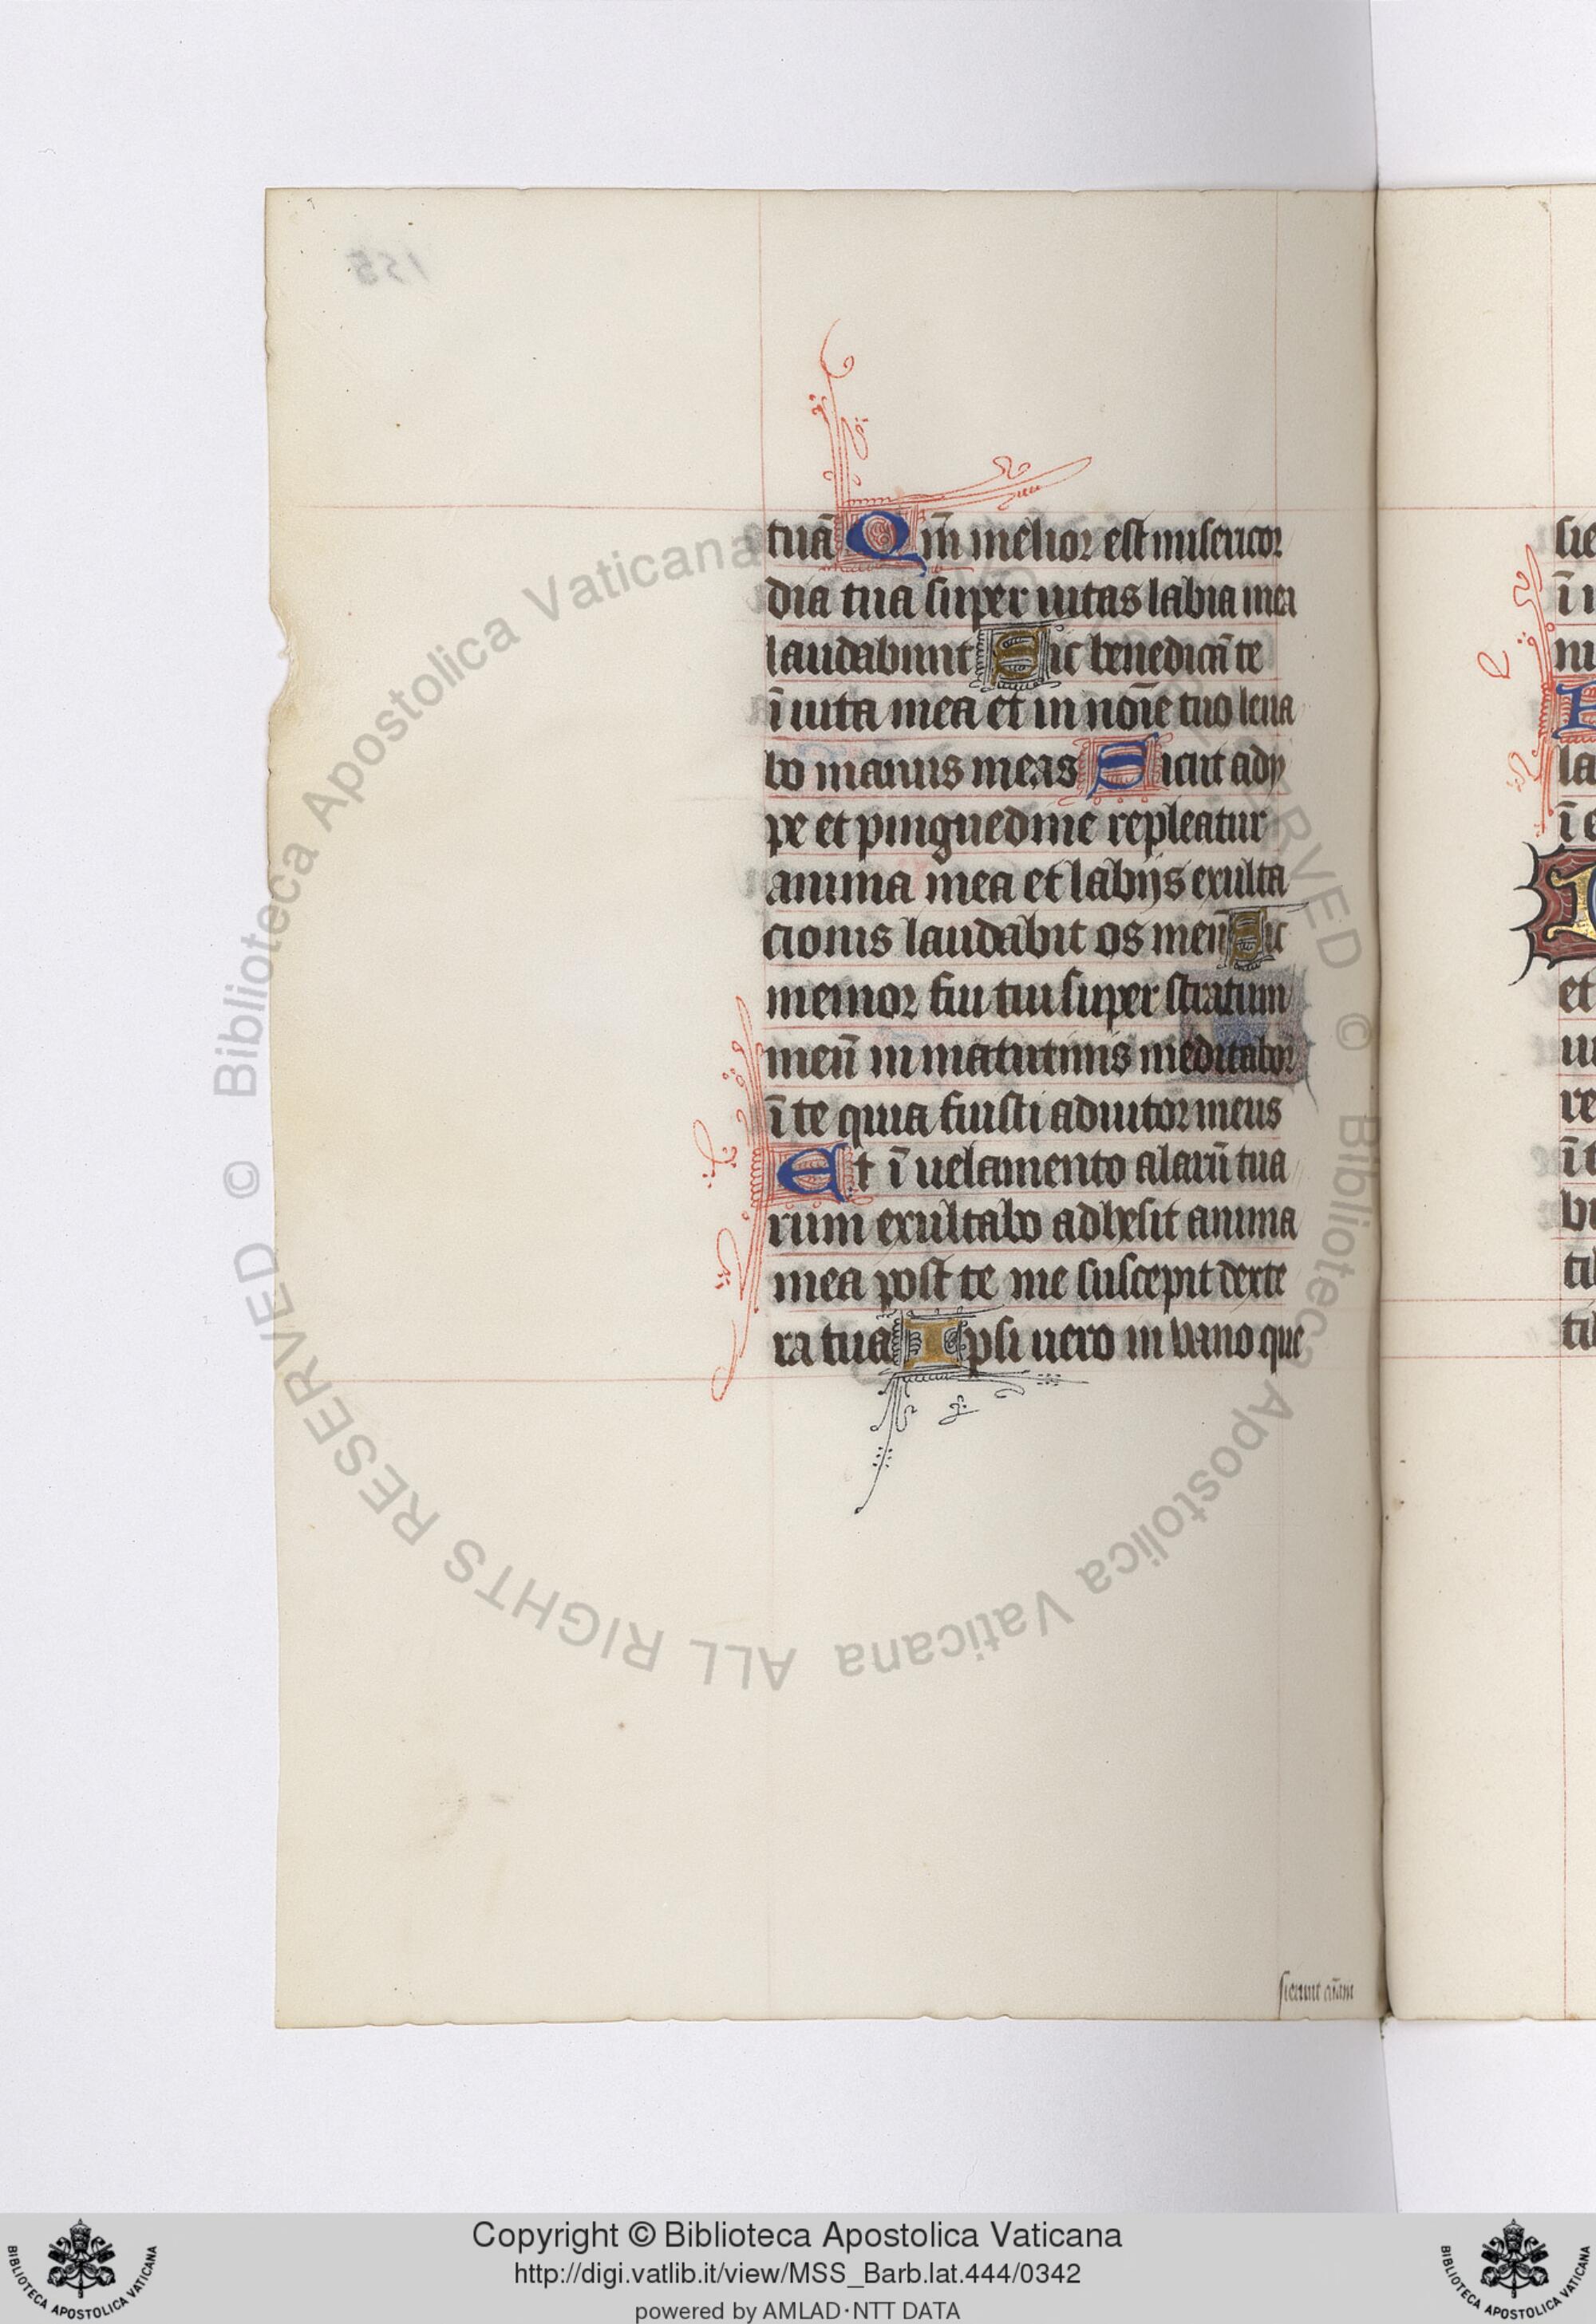 155
tuā Qm̄ melior est misericor
dia tua super uitas labia mea
laudabunt Sic benedicā te
ī uita mea et in noīe tuo leua
bo manus meas Sicut adi
pe et pinguedine repleatur
anima mea et labijs exulta
cionis laudabit os meū Sic
memor fui tui super stratum
meū in matutinis meditabor
ī te quia fuisti adiutor meus
Et ī uelamento alarū tua
rum exultabo adhesit anima
mea post te me suscepit dexte
ra tua Ipsi uero in uano que
sierunt aīam
sie
ī
la
ī
et
re
ī
Biblioteca Apostolica Vaticana
ALL RIGHTS RESERVED © Biblioteca Apostolica Vaticana
Copyright © Biblioteca Apostolica Vaticana
http://digi.vatlib.it/view/MSS_Barb.lat.444/0342
powered by AMLAD·NTT DATA
BIBLIOTECA APOSTOLICA VATICANA
BIBLIOTECA APOSTOLICA VATICANA